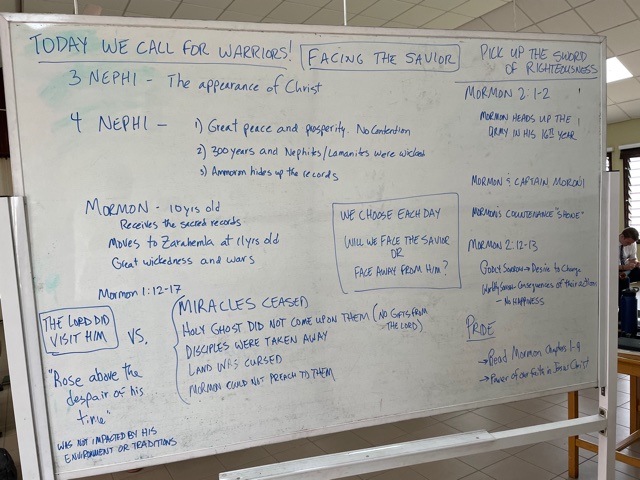 TODAY WE CALL FOR WARRIORS!
FACING THE SAVIOR
3 NEPHI - The appearance of Christ
4 NEPHI -
1) Great peace and prosperity. No Contention
2) 300 years and Nephites/Lamanites were wicked
3) Ammoron hides up the records
MORMON - 10 yrs old
Receives the sacred records
Moves to Zarahemla at 11 yrs old
Great wickedness and wars
WE CHOOSE EACH DAY
WILL WE FACE THE SAVIOR
OR
FACE AWAY FROM HIM?
Mormon 1:12-17
THE LORD DID
VISIT HIM
VS.
MIRACLES CEASED
HOLY GHOST DID NOT COME UPON THEM (NO GIFTS FROM
THE LORD)
DISCIPLES WERE TAKEN AWAY
LAND WAS CURSED
MORMON COULD NOT PREACH TO THEM
"Rose above the
despair of his
time"
WAS NOT IMPACTED BY HIS
ENVIRONMENT OR TRADITIONS
PICK UP THE SWORD
OF RIGHTEOUSNESS
MORMON 2:1-2
MORMON HEADS UP THE
ARMY IN HIS 16TH YEAR
MORMON & CAPTAIN MORONI
MORMON'S COUNTENANCE "SHONE"
MORMON 2:12-13
Godly Sorrow → Desire to Change
Worldly Sorrow - Consequences of their action
- NO HAPPINESS
PRIDE
→ Read Mormon Chapters 1-9
→ Power of our faith in Jesus Christ